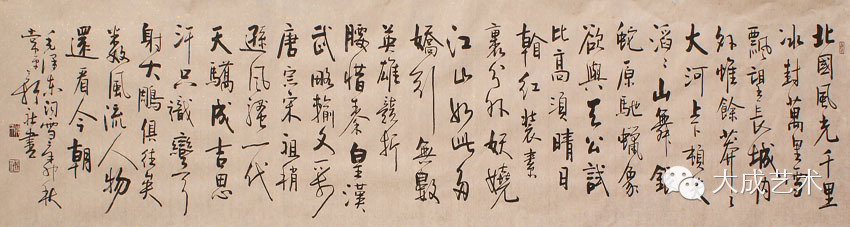 北國風光千里
冰封萬里雪
飄望長城内
外惟餘莽々
大河上下頓失
滔々山舞銀
蛇原馳蠟象
欲與天公試
比高須晴日
看紅裝素
裹分外妖嬈
江山如此多
嬌引無數
英雄競折
腰惜秦皇漢
武略輸文采
唐宗宋祖稍
遜風騷一代
天驕成吉思
汗只識彎弓
射大鵰俱往矣
數風流人物
還看今朝
毛澤東詞雪 秋
書
大成艺术